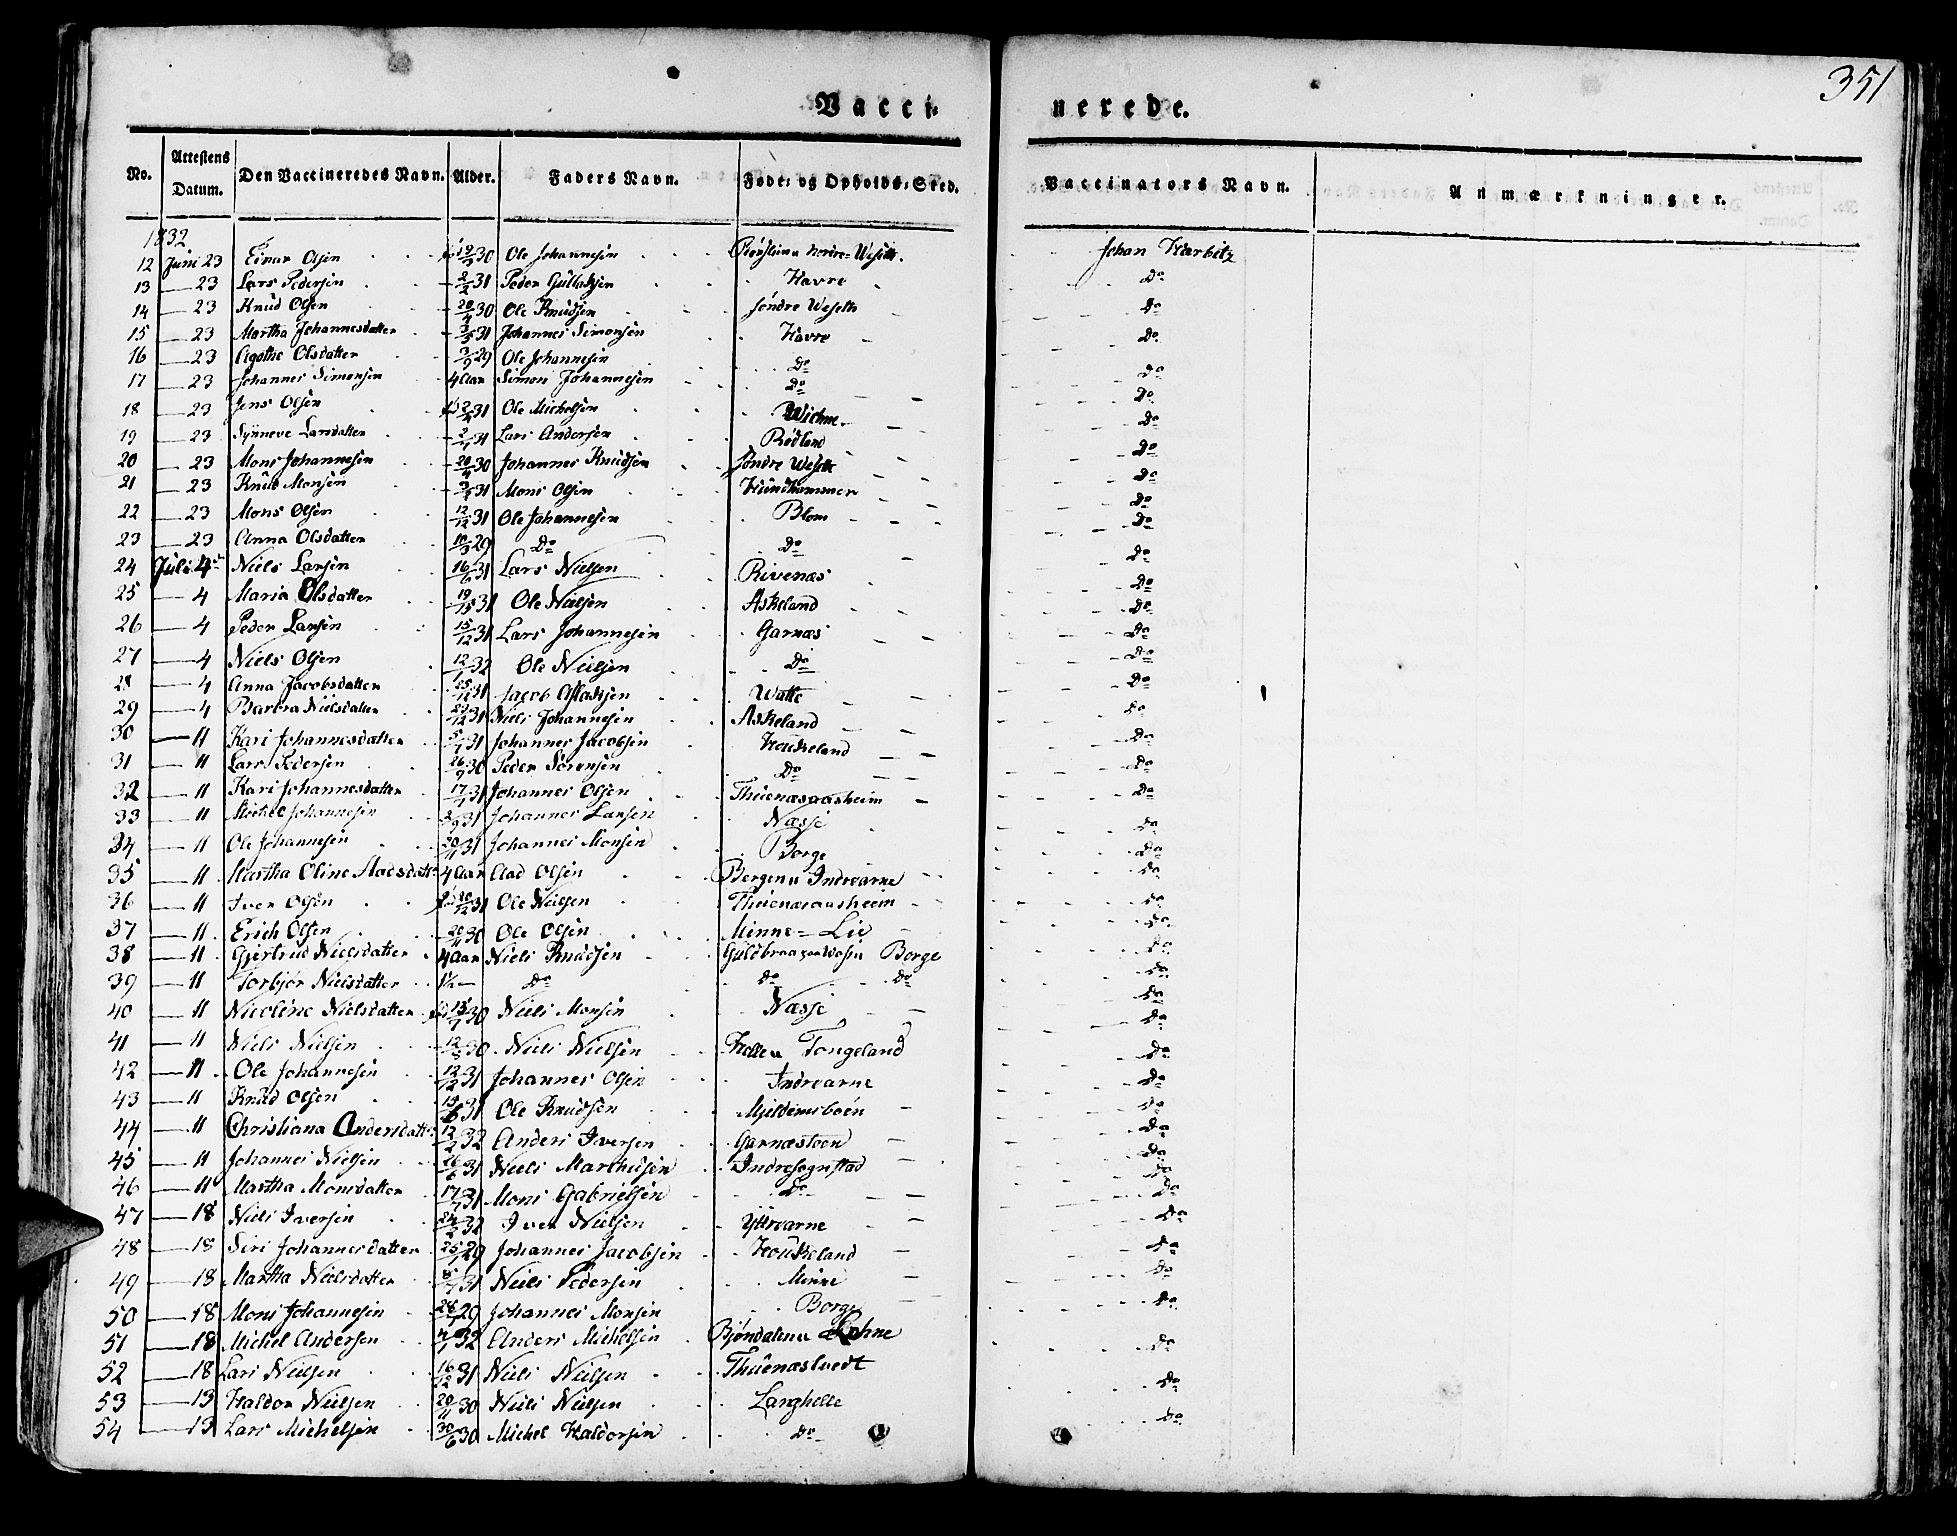 351
Vacci= nerede.
No. Attestens Datum. Den Vaccineredes Navn. Alder. Faders Navn. Føde= og Opholds=Sted. Vaccinators Navn. Anmærkninger.
1832
12 Juni 23 Einar Olsen 30 Ole Johannesen Nordre= Johan Harbitz
13 — 23 Lars Pedersen 2/2 31 Peder Gullaksen Havre Do
14 — 23 Knud Olsen 20/4 30 Ole Knudsen Søndre Weseth Do
15 — 23 Martha Johannesdatter 3/5 31 Johannes Simonsen Havre Do
16 — 23 Agothe Olsdatter 3/9 29 Ole Johannesen Do Do
17 — 23 Johannes Simonsen 4 Aar Simon Johannesen Do Do
18 — 23 Jens Olsen 31 Ole Michelsen Wichne Do
19 — 23 Synneve Larsdatter 31 Lars Andersen Rødland Do
20 — 23 Mons Johannesen 20/4 30 Johannes Knudsen Søndre Weseth Do
21 — 23 Knud Monsen 31 Mons Olsen Hundhammer Do
22 — 23 Mons Olsen 12/12 31 Ole Johannesen Blom Do
23 — 23 Anna Olsdatter 10/3 29 Do Do Do
24 Juli 4 Niels Larsen 16/6 31 Lars Nielsen Rivenæs Do
25 — 4 Maria Olsdatter 31 Ole Nielsen Askeland Do
26 — 4 Peder Larsen 15/12 31 Lars Johannesen Garnæs Do
27 — 4 Niels Olsen 12/1 32 Ole Nielsen Do Do
28 — 4 Anna Jacobsdatter 31 Jacob Aslaksen Watle Do
29 — 4 Barbra Nielsdatter 31 Niels Johannesen Askeland Do
30 — 11 Kari Johannesdatter 5/1 31 Johannes Jacobsen Houkeland Do
31 — 11 Lars Pedersen 26/9 30 Peder Sørensen Do Do
32 — 11 Kari Johannesdatter 17/1 31 Johannes Olsen Thuenæsaasheim Do
33 — 11 Michel Johannesen 31 Johannes Larsen Næsse Do
34 — 11 Ole Johannesen 20/11 31 Johannes Monsen Borge Do
35 — 11 Martha Oline Aadsdatt 4 Aar Aad Olsen Bergen u Indrearne Do
36 — 11 Iver Olsen 31 Ole Nielsen Thuenæsaasheim Do
37 — 11 Erich Olsen 20/11 30 Ole Olsen Minne= Lie Do
38 — 11 Gjertrud Nielsdatter 4 Aar Niels Knudsen Borge Do
39 — 11 Torbjør Nielsdatter 1½ — Do Do Do Do
40 — 11 Nicoline Nielsdatter 30 Niels Monsen Næsse Do
41 — 11 Niels Nielsen 30 Niels Nielsen Helle u Tongeland Do
42 — 11 Ole Johannesen 12/12 31 Johannes Olsen Indrearne Do
43 — 11 Knud Olsen 19/6 31 Ole Knudsen Mjeldemsboen Do
44 — 11 Christiana Andersdatt 32 Anders Iversen Garnæstoen Do
45 — 11 Johannes Nielsen 26/6 31 Niels Martinsen Indresognstad Do
46 — 11 Martha Monsdatter 17/7 31 Mons Gabrielsen Do Do
47 — 18 Niels Iversen 32 Iver Nielsen Yttrearne Do
48 — 18 Siri Johannesdatter 29 Johannes Jacobsen Houkeland Do
49 — 18 Martha Nielsdatter 31 Niels Pedersen Minne Do
50 — 18 Mons Johannesen 29 Johannes Monsen Borge Do
51 — 18 Michel Andersen 4/1 32 Anders Michelsen Bjøndalen u Lohne Do
52 — 18 Lars Nielsen 16/12 31 Niels Nielsen Thuenæstvedt Do
53 — 13 Haldor Nielsen 20/11 30 Niels Nielsen Langhelle Do
54 — 13 Lars Michelsen 30/6 30 Michel Haldorsen Do Do